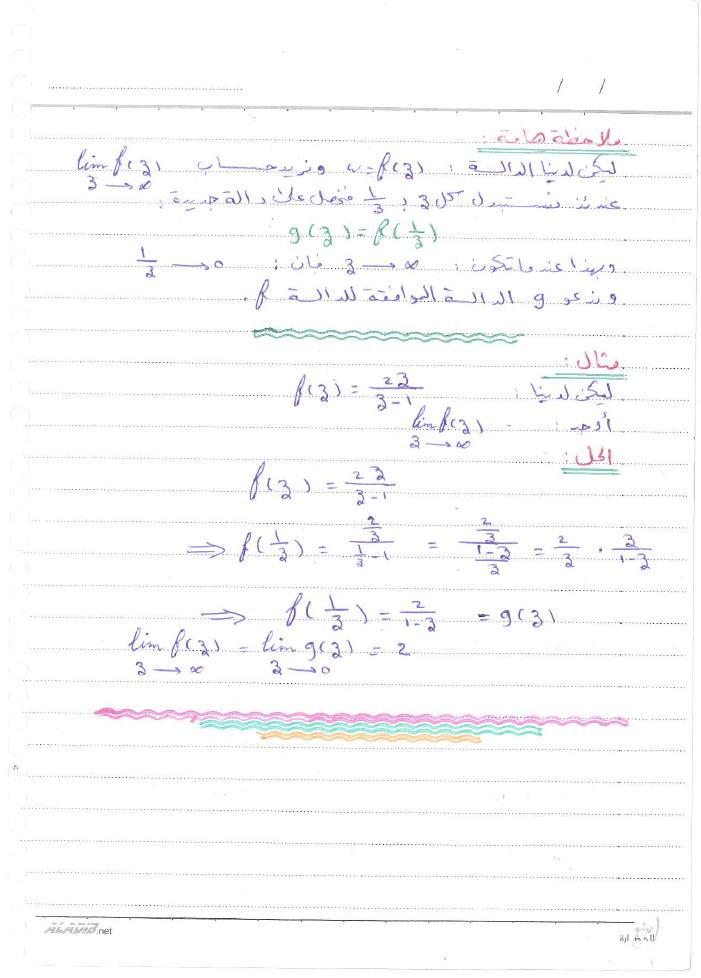 / /
ملاحظة هامة :
ليكن لدينا الدالة : w=f(z) ونريد حساب lim f(z) z→∞
عندئذ نستبدل كل z بـ 1/z فنحصل على دالة جديدة :
g(z)=f(1/z)
وبهذا عندما تكون : z→∞ فان : 1/z→0
وندعو g الدالة الموافقة للدالة f.
مثال :
ليكن لدينا : f(z) = 2z/(z-1)
أوجد : lim f(z) z→∞
الحل :
f(z) = 2z/(z-1)
⇒ f(1/z) = (2/z)/(1/z-1) = (2/z)/((1-z)/z) = 2/z · z/(1-z)
⇒ f(1/z) = 2/(1-z) = g(z)
lim f(z) z→∞ = lim g(z) z→0 = 2
ALADIB.net